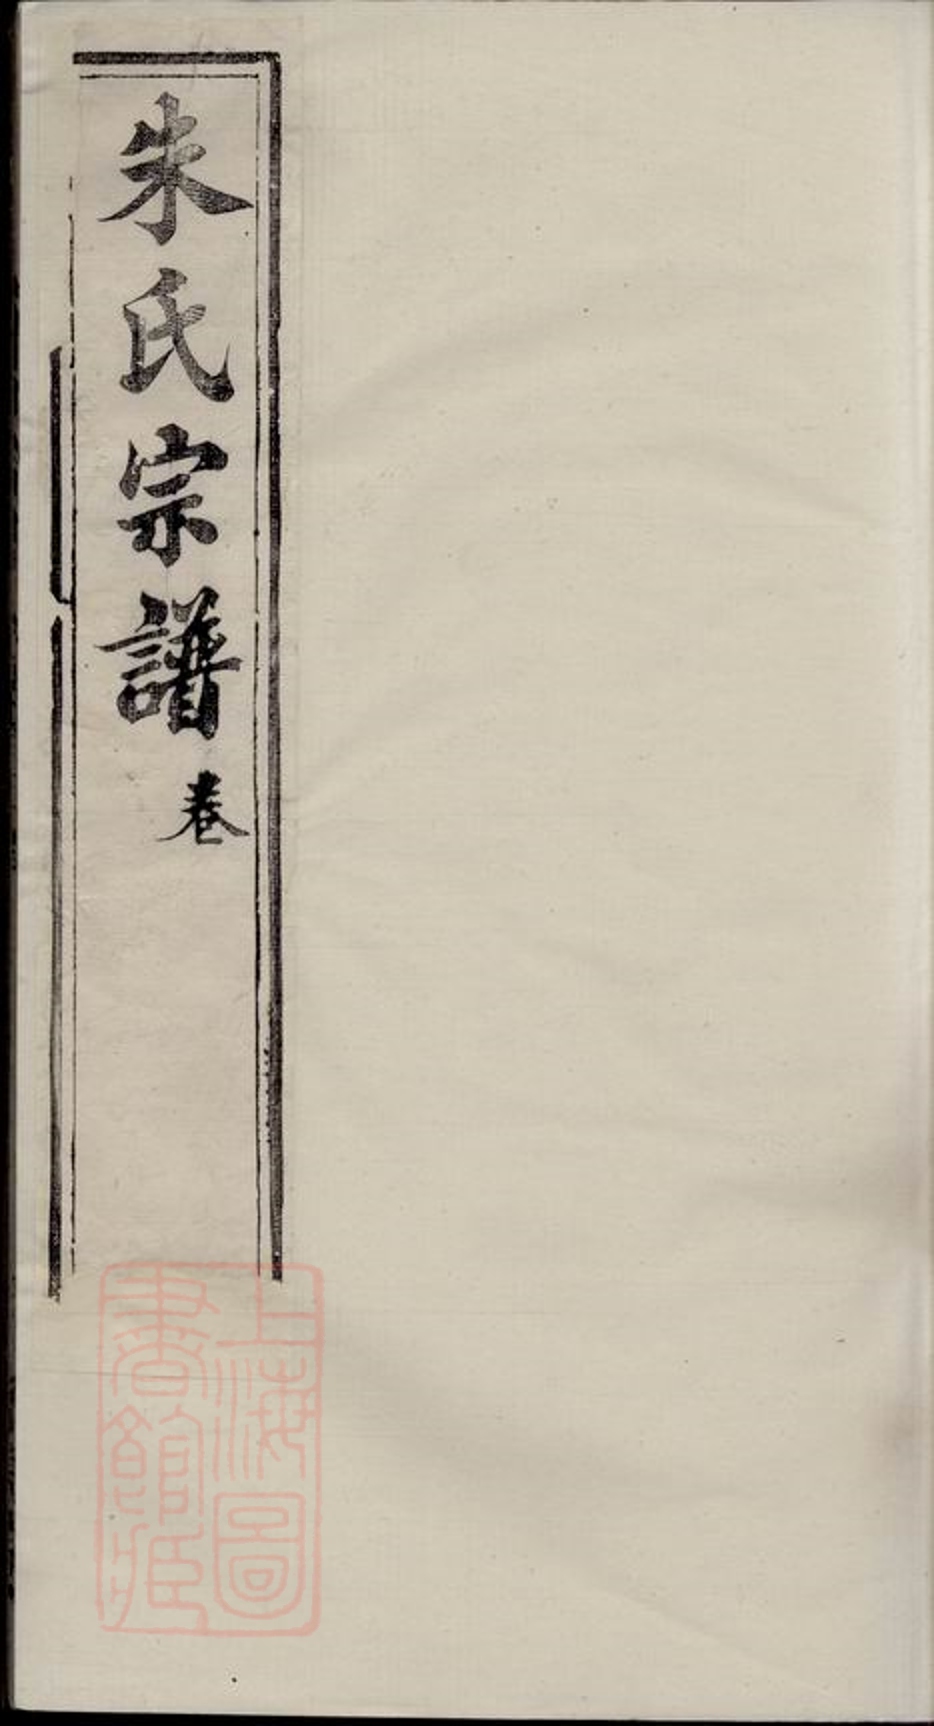 朱氏宗譜
卷
上海圖
書館藏